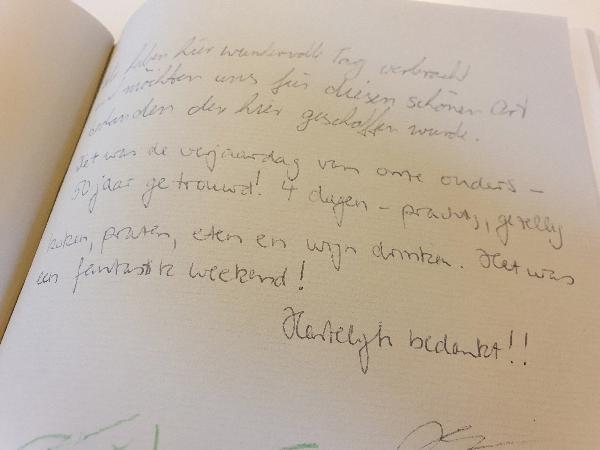 haben hier wundervolle Tag verbracht
möchten uns für diesen schönen Ort
bedanken der hier geschaffen wurde.
Het was de verjaardag van onze ouders –
50 jaar getrouwd! 4 dagen – prachtig, gezellig
koken, praten, eten en wijn drinken. Het was
een fantastik weekend!
Hartelijk bedankt!!